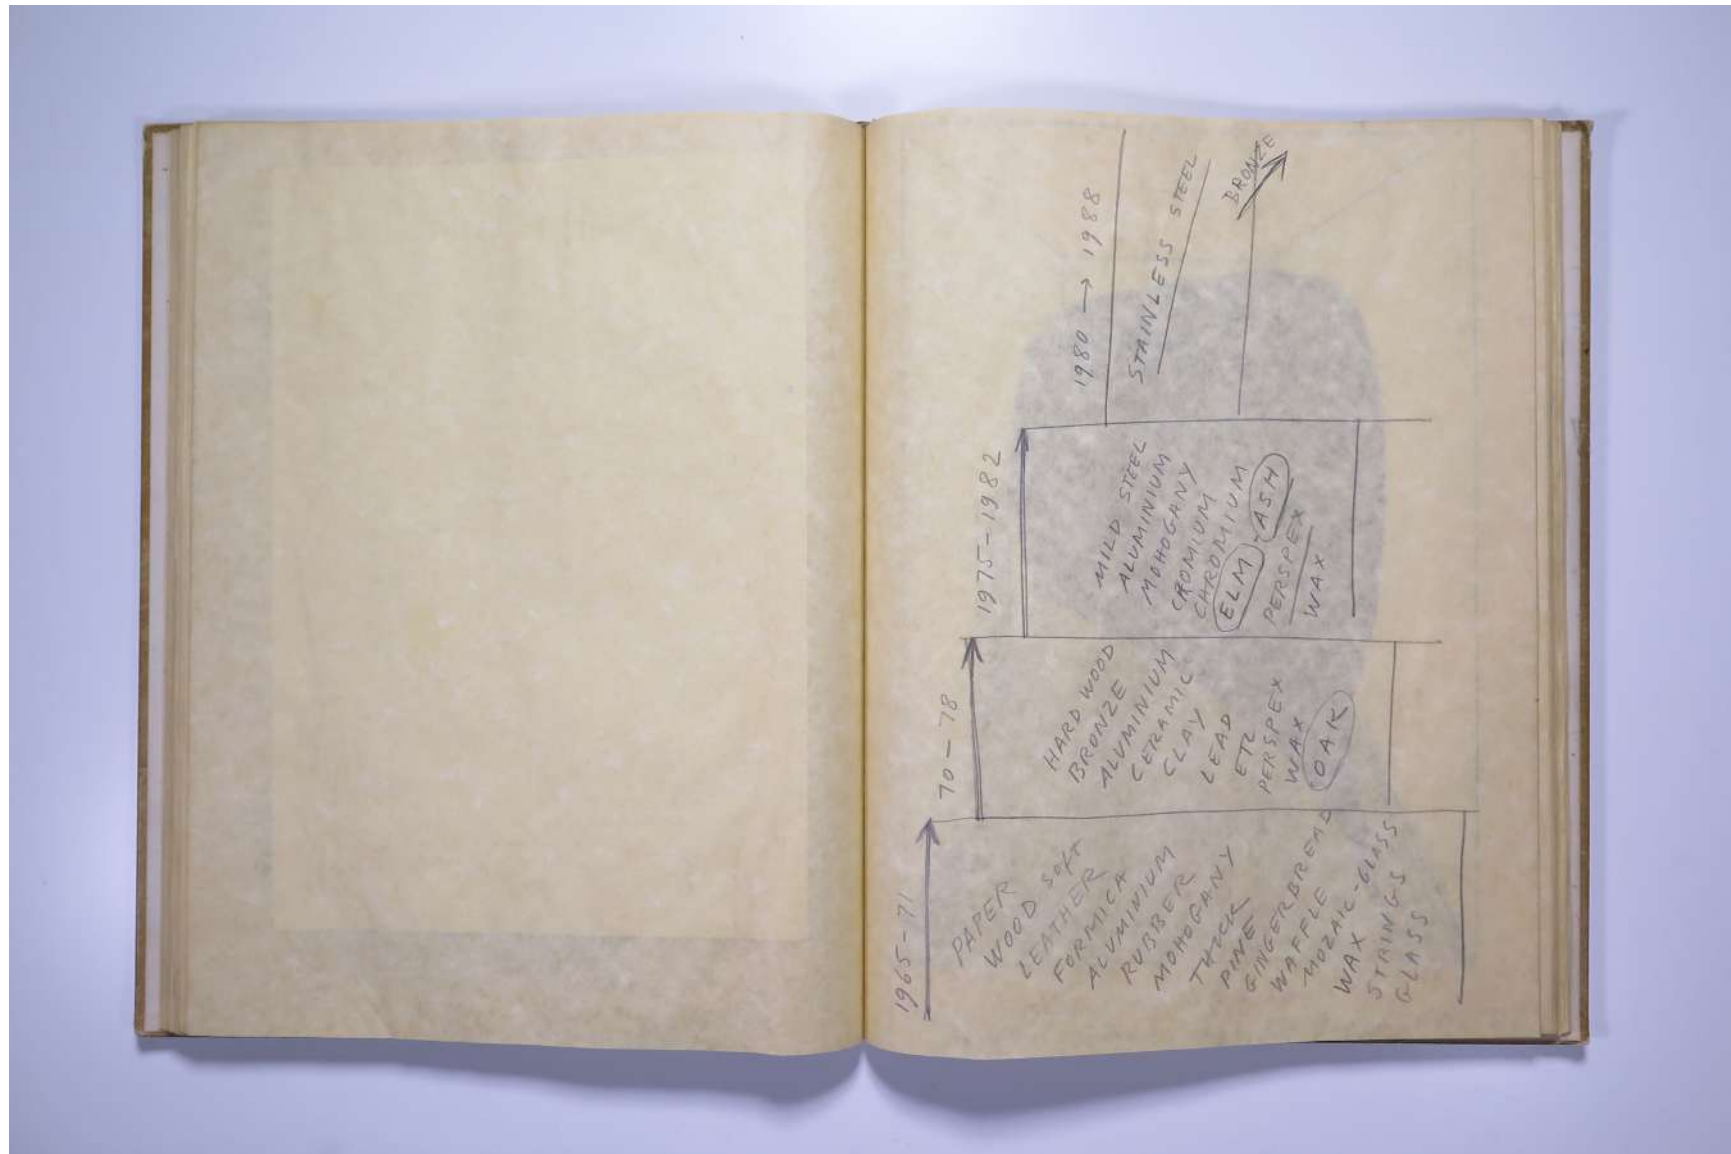 1965-71
PAPER
WOOD SOFT
LEATHER
FORMICA
ALUMINIUM
RUBBER
MOHOGANY
THICK
PINE
GINGERBREAD
WAFFLE
MOZAIC-GLASS
WAX
STRINGS
GLASS
70-78
HARD WOOD
BRONZE
ALUMINIUM
CERAMIC
CLAY
LEAD
ETC
PERSPEX
WAX
OAK
1975-1982
MILD STEEL
ALUMINIUM
MOHOGANY
CROMIUM
CHROMIUM
ELM-ASH
PERSPEX
WAX
1980 → 1988
STAINLESS STEEL
BRONZE